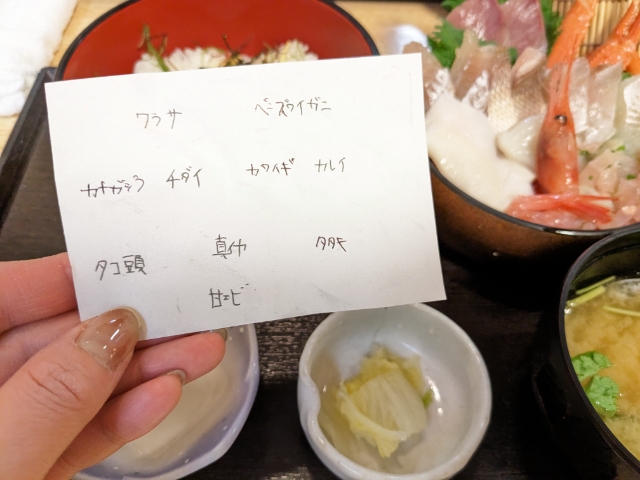 ワラサ ベニズワイガニ
カナガシラ チダイ カワハギ カレイ
タコ頭 真イカ タタキ
甘エビ